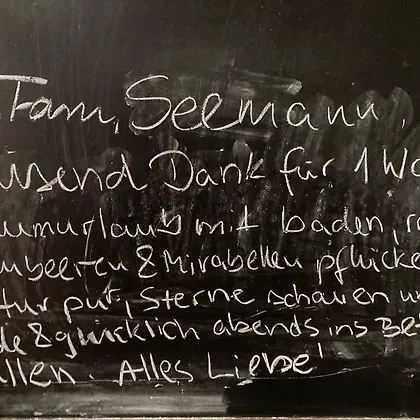 Fam. Seemann,
usend Dank für 1 Wo
umurlaub mit baden, 
mbeeren & Mirabellen pflücke
tur pur, Sterne schauen u
de & glücklich abends ins Be
llen. Alles Liebe!